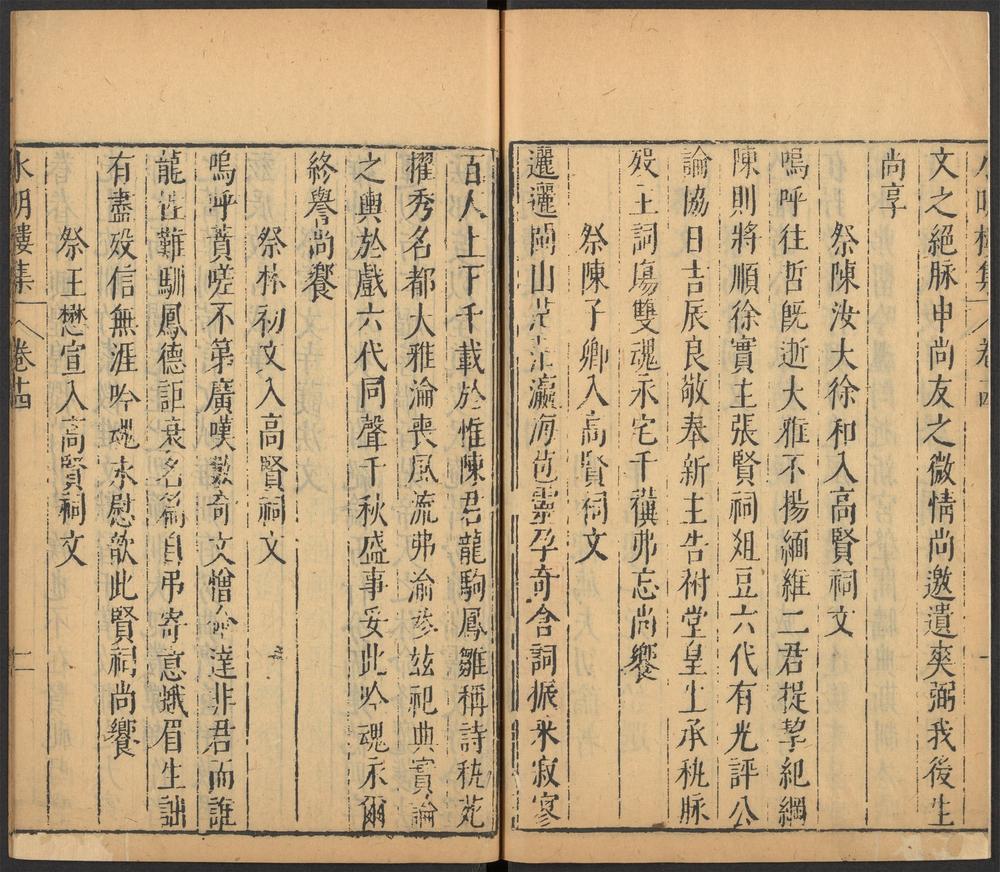 水明樓集 卷十四 一
文之絕脉申尚友之微情尚邀遺爽弼我後生
尚享
祭陳汝大徐和入高賢祠文
嗚呼往哲既逝大雅不揚緬維二君提挈紀綱
陳則將順徐實主張賢祠俎豆六代有光評公
論協日吉辰良敬奉新主告祔堂皇上承秇脉
殁王詞塲雙魂永宅千禩弗忘尚饗
祭陳子卿入高賢祠文
邐邐閩山茫茫瀛海苞靈孕奇含詞振采寂寥
百人上下千載於惟陳君龍駒鳳雛稱詩秇苑
擢秀名都大雅淪喪風流弗渝參兹祀典賓論
之輿於戲六代同聲千秋盛事妥此吟魂永爾
終譽尚饗
祭林初文入高賢祠文
嗚呼蕡嗟不第廣嘆數奇文憎命達非君而誰
龍性難馴鳳德詎衰名篇自弔寄意蛾眉生詘
有盡殁信無涯吟魂永慰歆此賢祠尚饗
祭王懋宣入高賢祠文
水明樓集 卷十四 二